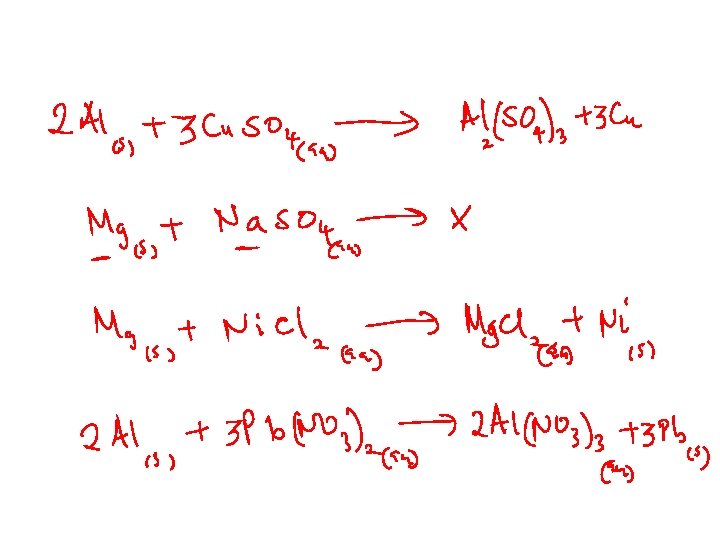 2Al(s) + 3CuSO4(aq) → Al2(SO4)3 + 3Cu
Mg(s) + NaSO4(aq) → X
Mg(s) + NiCl2(aq) → MgCl2(aq) + Ni(s)
2Al(s) + 3Pb(NO3)2(aq) → 2Al(NO3)3(aq) + 3Pb(s)